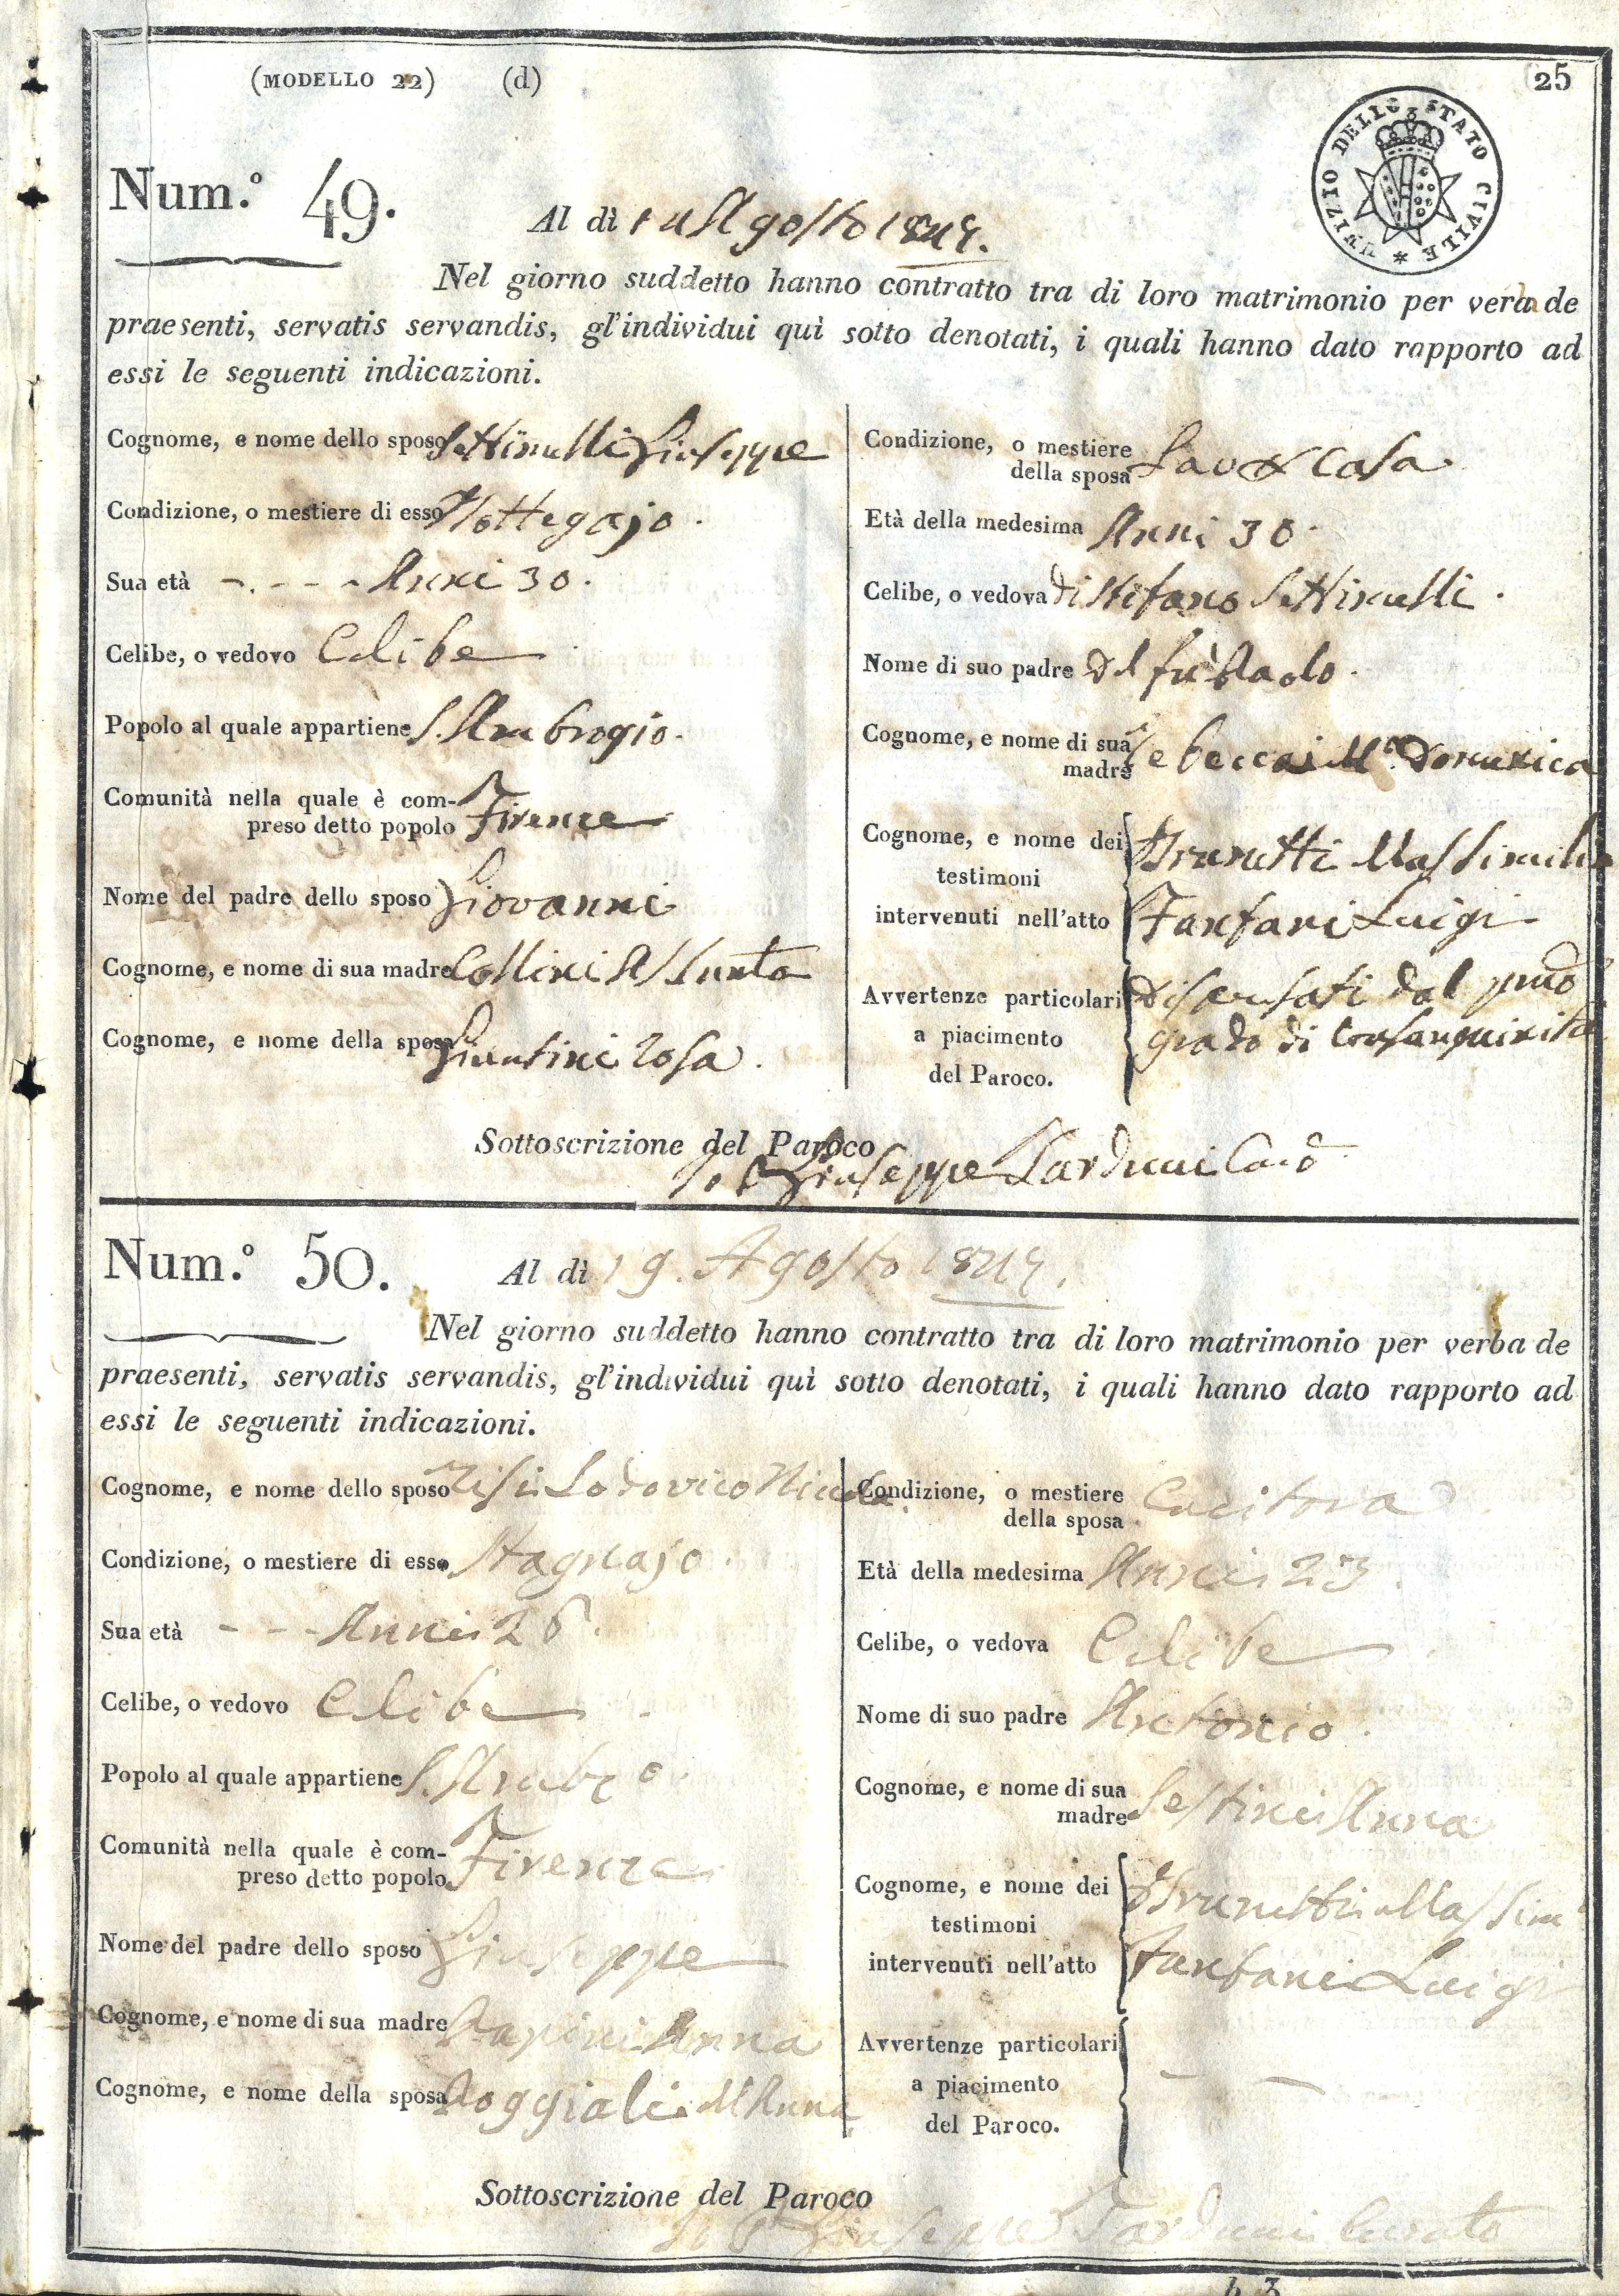 (MODELLO 22) (d)
25
UFIZIO DELLO STATO CIVILE *
Num.º 49.
Al dì Agosto
Nel giorno suddetto hanno contratto tra di loro matrimonio per verba de
praesenti, servatis servandis, gl'individui quì sotto denotati, i quali hanno dato rapporto ad
essi le seguenti indicazioni.
Cognome, e nome dello sposo Settimelli Giuseppe
Condizione, o mestiere di esso
Sua età Anni 30.
Celibe, o vedovo Celibe
Popolo al quale appartiene S. Ambrogio.
Comunità nella quale è com-
preso detto popolo Firenze
Nome del padre dello sposo Giovanni
Cognome, e nome di sua madre Collini Assunta
Cognome, e nome della sposa Giuntini Rosa.
Condizione, o mestiere
della sposa Casa
Età della medesima Anni 30.
Celibe, o vedova di Stefano Settimelli.
Nome di suo padre del fù Paolo.
Cognome, e nome di sua
madre Mª Domenica
Cognome, e nome dei
testimoni
intervenuti nell'atto
Brunetti Massimilio
Fanfani Luigi
Avvertenze particolari
a piacimento
del Paroco.
Dispensati dal pmo
grado di consanguinita
Sottoscrizione del Paroco
Giuseppe Tarduci
Num.º 50.
Al dì 19. Agosto
Nel giorno suddetto hanno contratto tra di loro matrimonio per verba de
praesenti, servatis servandis, gl'individui quì sotto denotati, i quali hanno dato rapporto ad
essi le seguenti indicazioni.
Cognome, e nome dello sposo Lodovico
Condizione, o mestiere di esso Stagnajo.
Sua età Anni 26.
Celibe, o vedovo Celibe
Popolo al quale appartiene S. Ambº.
Comunità nella quale è com-
preso detto popolo Firenze
Nome del padre dello sposo Giuseppe
Cognome, e nome di sua madre Papini Anna
Cognome, e nome della sposa Poggiali M Anna
Condizione, o mestiere
della sposa Cucitora
Età della medesima Anni 23.
Celibe, o vedova Celibe
Nome di suo padre Antonio.
Cognome, e nome di sua
madre Sestini Anna
Cognome, e nome dei
testimoni
intervenuti nell'atto
Brunetti Massim
Fanfani Luigi
Avvertenze particolari
a piacimento
del Paroco.
Sottoscrizione del Paroco
Giuseppe Tarduci Curato